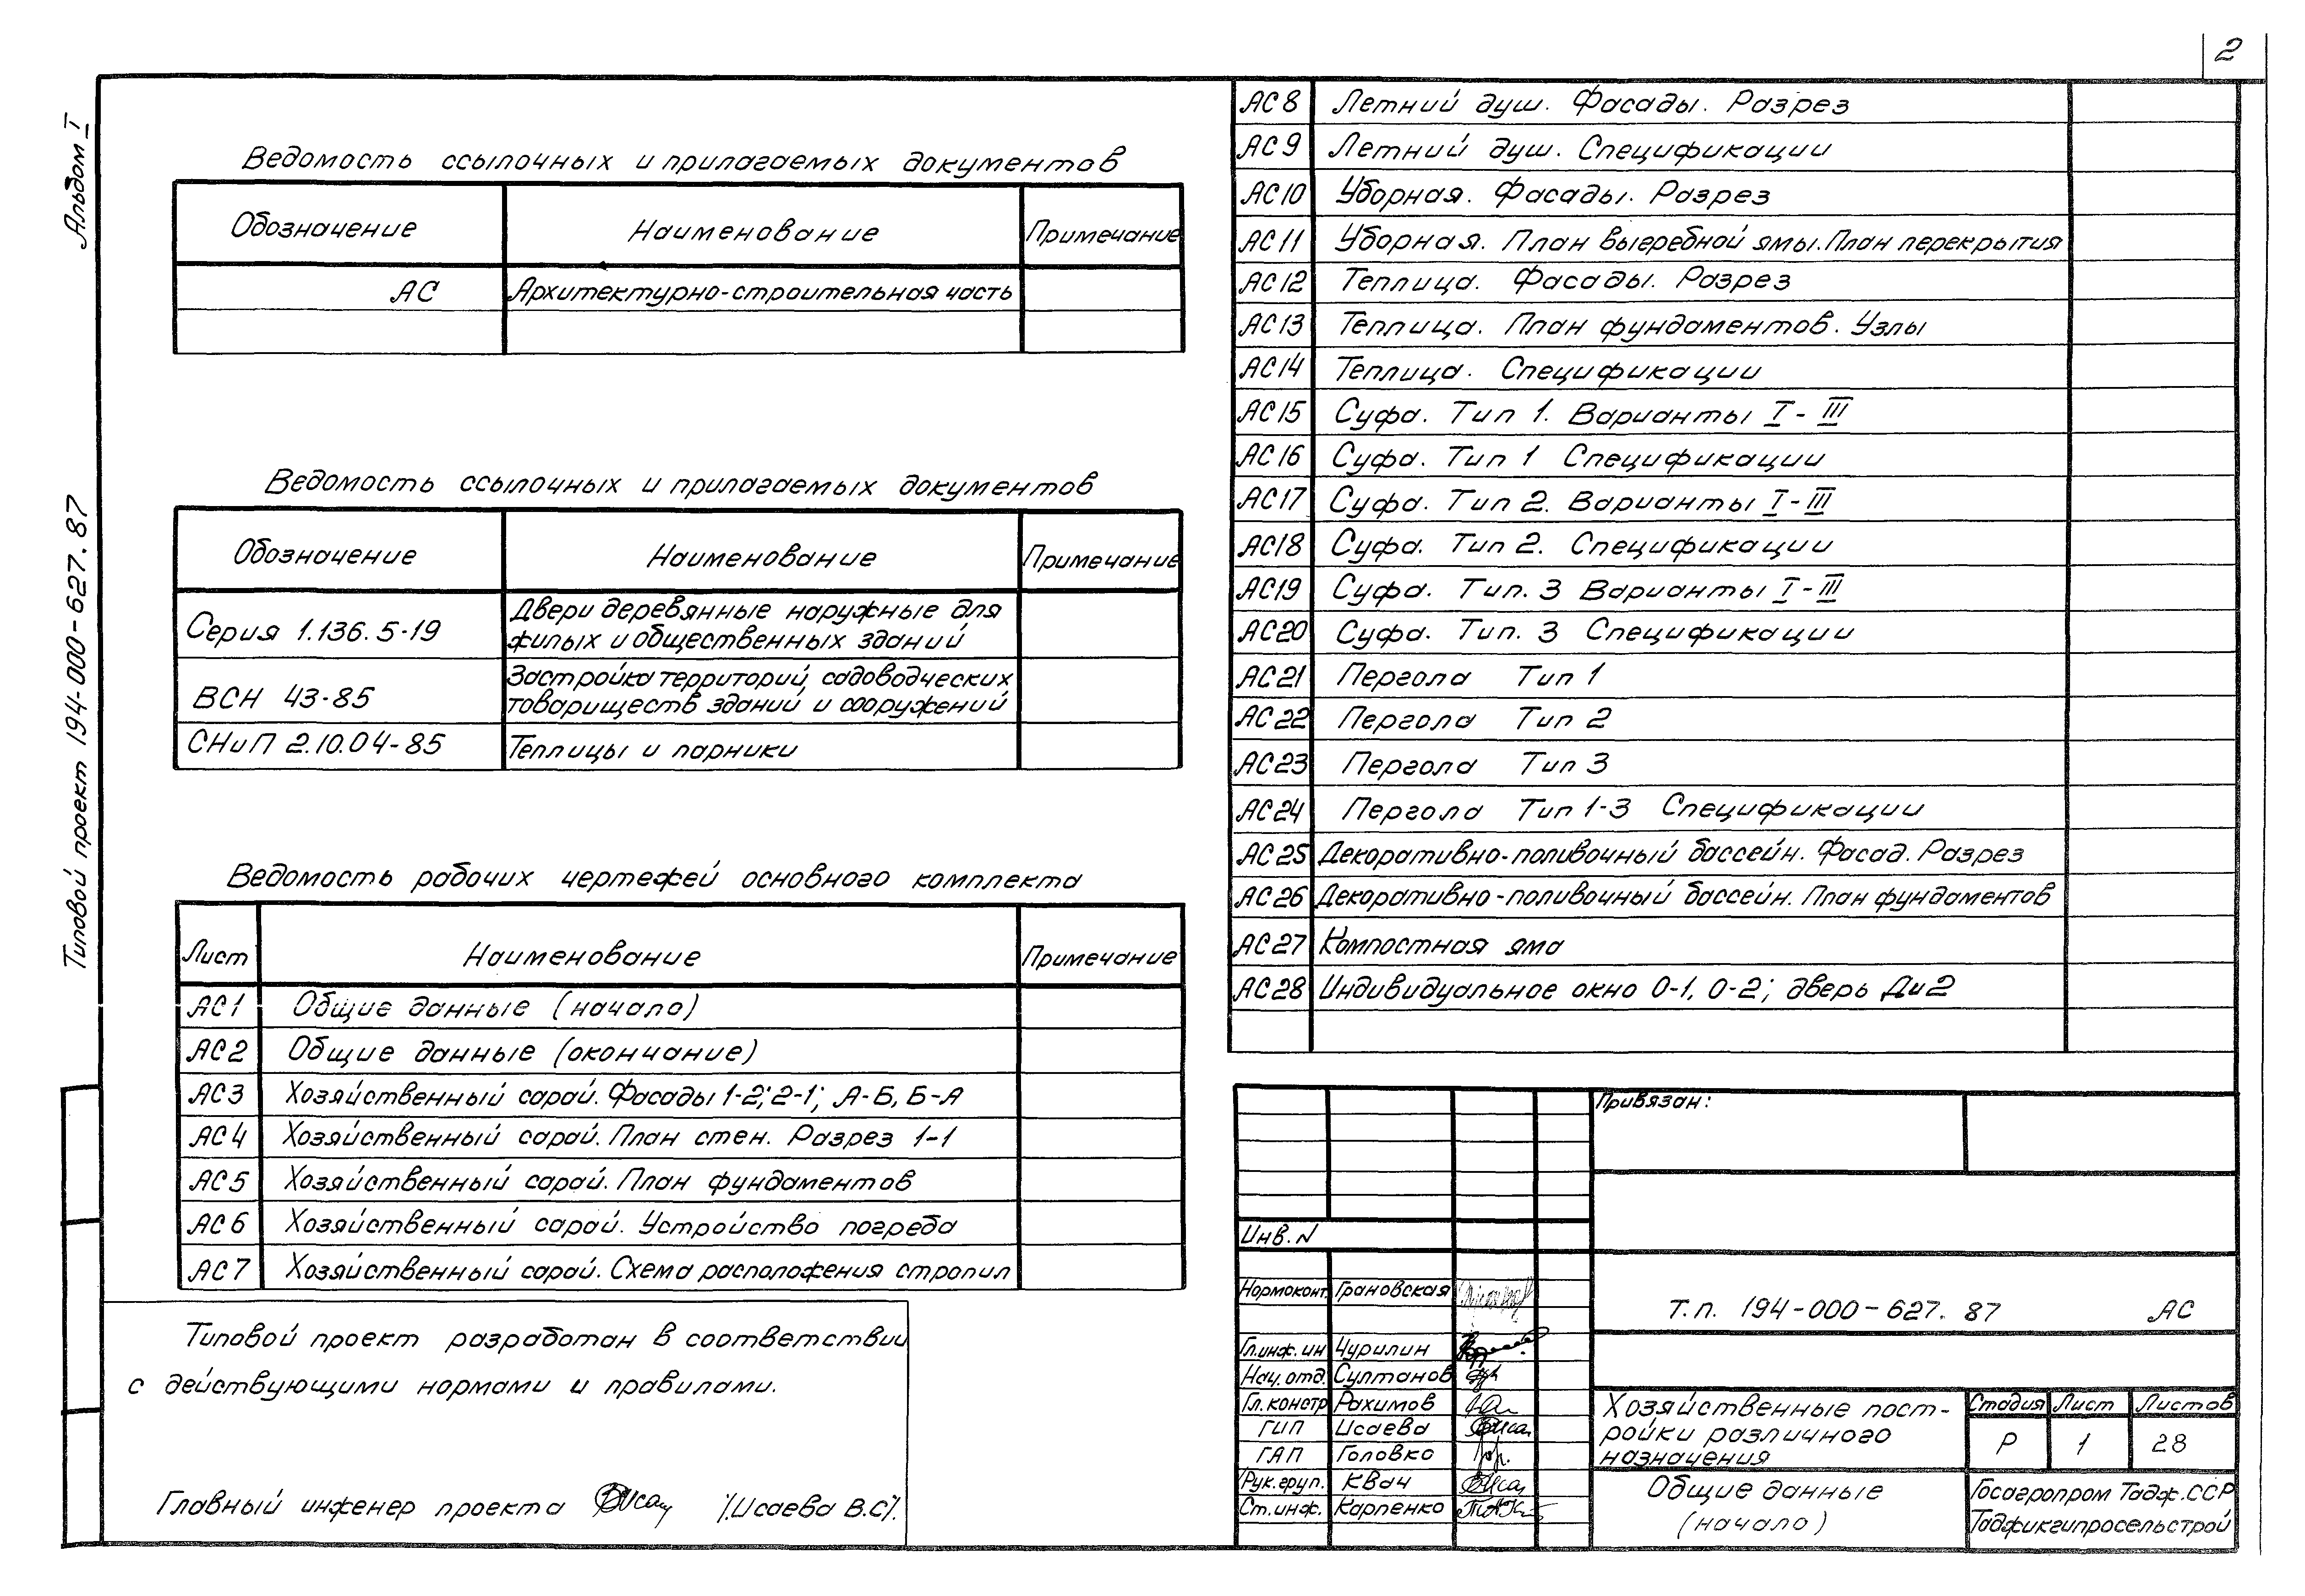 2
Альбом I
Типовой проект 194-000-627.87
Ведомость ссылочных и прилагаемых документов
Обозначение Наименование Примечание
АС Архитектурно-строительная часть
Ведомость ссылочных и прилагаемых документов
Обозначение Наименование Примечание
Серия 1.136.5-19 Двери деревянные наружные для
жилых и общественных зданий
ВСН 43-85 Застройка территорий садоводческих
товариществ, зданий и сооружений
СНиП 2.10.04-85 Теплицы и парники
Ведомость рабочих чертежей основного комплекта
Лист Наименование Примечание
АС1 Общие данные (начало)
АС2 Общие данные (окончание)
АС3 Хозяйственный сарай. Фасады 1-2; 2-1; А-Б, Б-А
АС4 Хозяйственный сарай. План стен. Разрез 1-1
АС5 Хозяйственный сарай. План фундаментов
АС6 Хозяйственный сарай. Устройство погреба
АС7 Хозяйственный сарай. Схема расположения стропил
Типовой проект разработан в соответствии
с действующими нормами и правилами.
Главный инженер проекта /Исаева В.С/.
АС8 Летний душ. Фасады. Разрез
АС9 Летний душ. Спецификации
АС10 Уборная. Фасады. Разрез
АС11 Уборная. План выгребной ямы. План перекрытия
АС12 Теплица. Фасады. Разрез
АС13 Теплица. План фундаментов. Узлы
АС14 Теплица. Спецификации
АС15 Суфа. Тип 1. Варианты I-III
АС16 Суфа. Тип 1 Спецификации
АС17 Суфа. Тип 2. Варианты I-III
АС18 Суфа. Тип 2. Спецификации
АС19 Суфа. Тип. 3 Варианты I-III
АС20 Суфа. Тип. 3 Спецификации
АС21 Пергола Тип 1
АС22 Пергола Тип 2
АС23 Пергола Тип 3
АС24 Пергола Тип 1-3 Спецификации
АС25 Декоративно-поливочный бассейн. Фасад. Разрез
АС26 Декоративно-поливочный бассейн. План фундаментов
АС27 Компостная яма
АС28 Индивидуальное окно О-1, О-2; дверь Ди2
Привязан:
Инв. N
Нормоконт. Грановская
Гл.инж.ин Чурилин
Нач.отд. Султанов
Гл.констр Рахимов
ГИП Исаева
ГАП Головко
Рук.груп. Квач
Ст.инж. Карпенко
Т.п. 194-000-627.87 АС
Хозяйственные пост-
ройки различного
назначения
Стадия Лист Листов
Р 1 28
Общие данные
(начало)
Госагропром Тадж.ССР
Таджикгипросельстрой